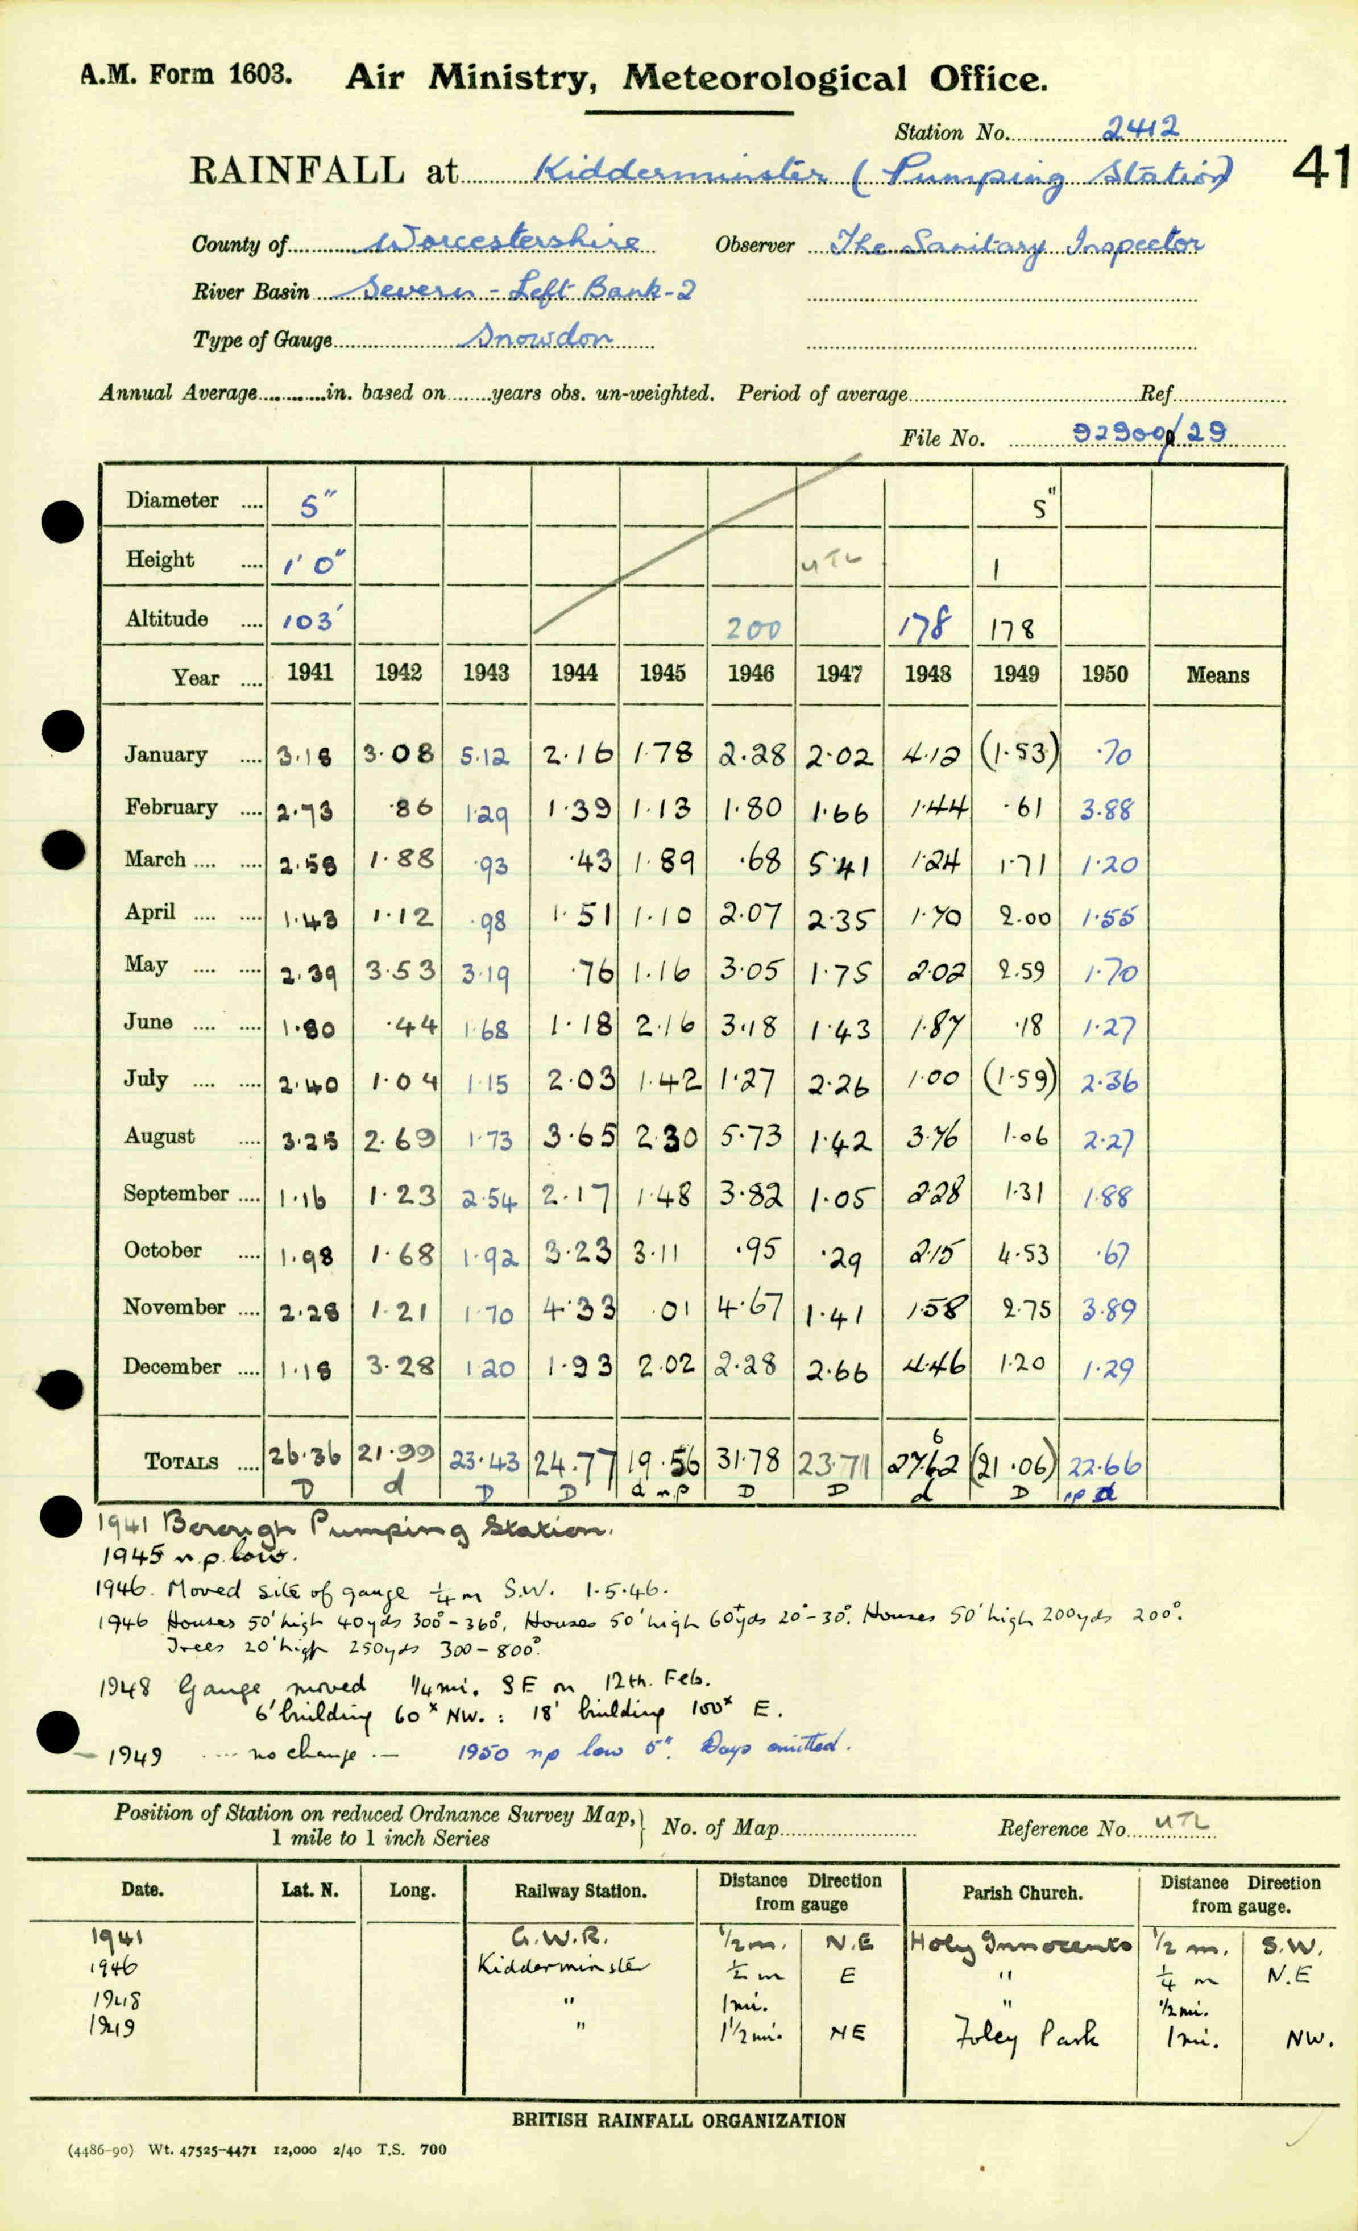 A.M. Form 1603. Air Ministry, Meteorological Office.
Station No. 2412
41
RAINFALL at Kidderminster (Pumping Station)
County of Worcestershire Observer The Sanitary Inspector
River Basin Severn - Left Bank-2
Type of Gauge Snowdon
Annual Average in. based on years obs. un-weighted. Period of average Ref
File No. 92900/29
Diameter 5" 5"
Height 1' 0" UTL 1
Altitude 103' 200 178 178
Year 1941 1942 1943 1944 1945 1946 1947 1948 1949 1950 Means
January 3.18 3.08 5.12 2.16 1.78 2.28 2.02 4.12 (1.53) .70
February 2.73 .86 1.29 1.39 1.13 1.80 1.66 1.44 .61 3.88
March 2.58 1.88 .93 .43 1.89 .68 5.41 1.24 1.71 1.20
April 1.43 1.12 .98 1.51 1.10 2.07 2.35 1.70 2.00 1.55
May 2.39 3.53 3.19 .76 1.16 3.05 1.75 2.02 2.59 1.70
June 1.80 .44 1.68 1.18 2.16 3.18 1.43 1.87 .18 1.27
July 2.40 1.04 1.15 2.03 1.42 1.27 2.26 1.00 (1.59) 2.36
August 3.25 2.69 1.73 3.65 2.30 5.73 1.42 3.76 1.06 2.27
September 1.16 1.23 2.54 2.17 1.48 3.82 1.05 2.28 1.31 1.88
October 1.98 1.68 1.92 3.23 3.11 .95 .29 2.15 4.53 .67
November 2.28 1.21 1.70 4.33 .01 4.67 1.41 1.58 2.75 3.89
December 1.18 3.28 1.20 1.93 2.02 2.28 2.66 4.46 1.20 1.29
6
TOTALS 26.36 21.99 23.43 24.77 19.56 31.78 23.71 27.62 (21.06) 22.66
D d D D d n p D D d D np d
1941 Borough Pumping Station.
1945 n.p. low.
1946. Moved site of gauge ¼ m S.W. 1.5.46.
1946 Houses 50' high 40yds 300°-360°, Houses 50' high 60yds 20°-30°. Houses 50' high 200yds 200°.
Trees 20' high 250yds 300-800°.
1948 Gauge moved 1/4 mi. SE on 12th. Feb.
6' building 60x NW. : 18' building 100x E.
- 1949 .... no change .— 1950 np low 5". Days omitted.
Position of Station on reduced Ordnance Survey Map, No. of Map Reference No. UTL
1 mile to 1 inch Series
Date. Lat. N. Long. Railway Station. Distance Direction from gauge Parish Church. Distance Direction from gauge.
1941 G.W.R. 1/2 m. N.E Holy Innocents 1/2 m. S.W.
1946 Kidderminster ½ m E " ¼ m N.E
1948 " 1 mi. " 1/2 mi.
1949 " 1 1/2 mi. NE Foley Park 1 mi. NW.
BRITISH RAINFALL ORGANIZATION
(4486-90) Wt. 47525-4471 12,000 2/40 T.S. 700